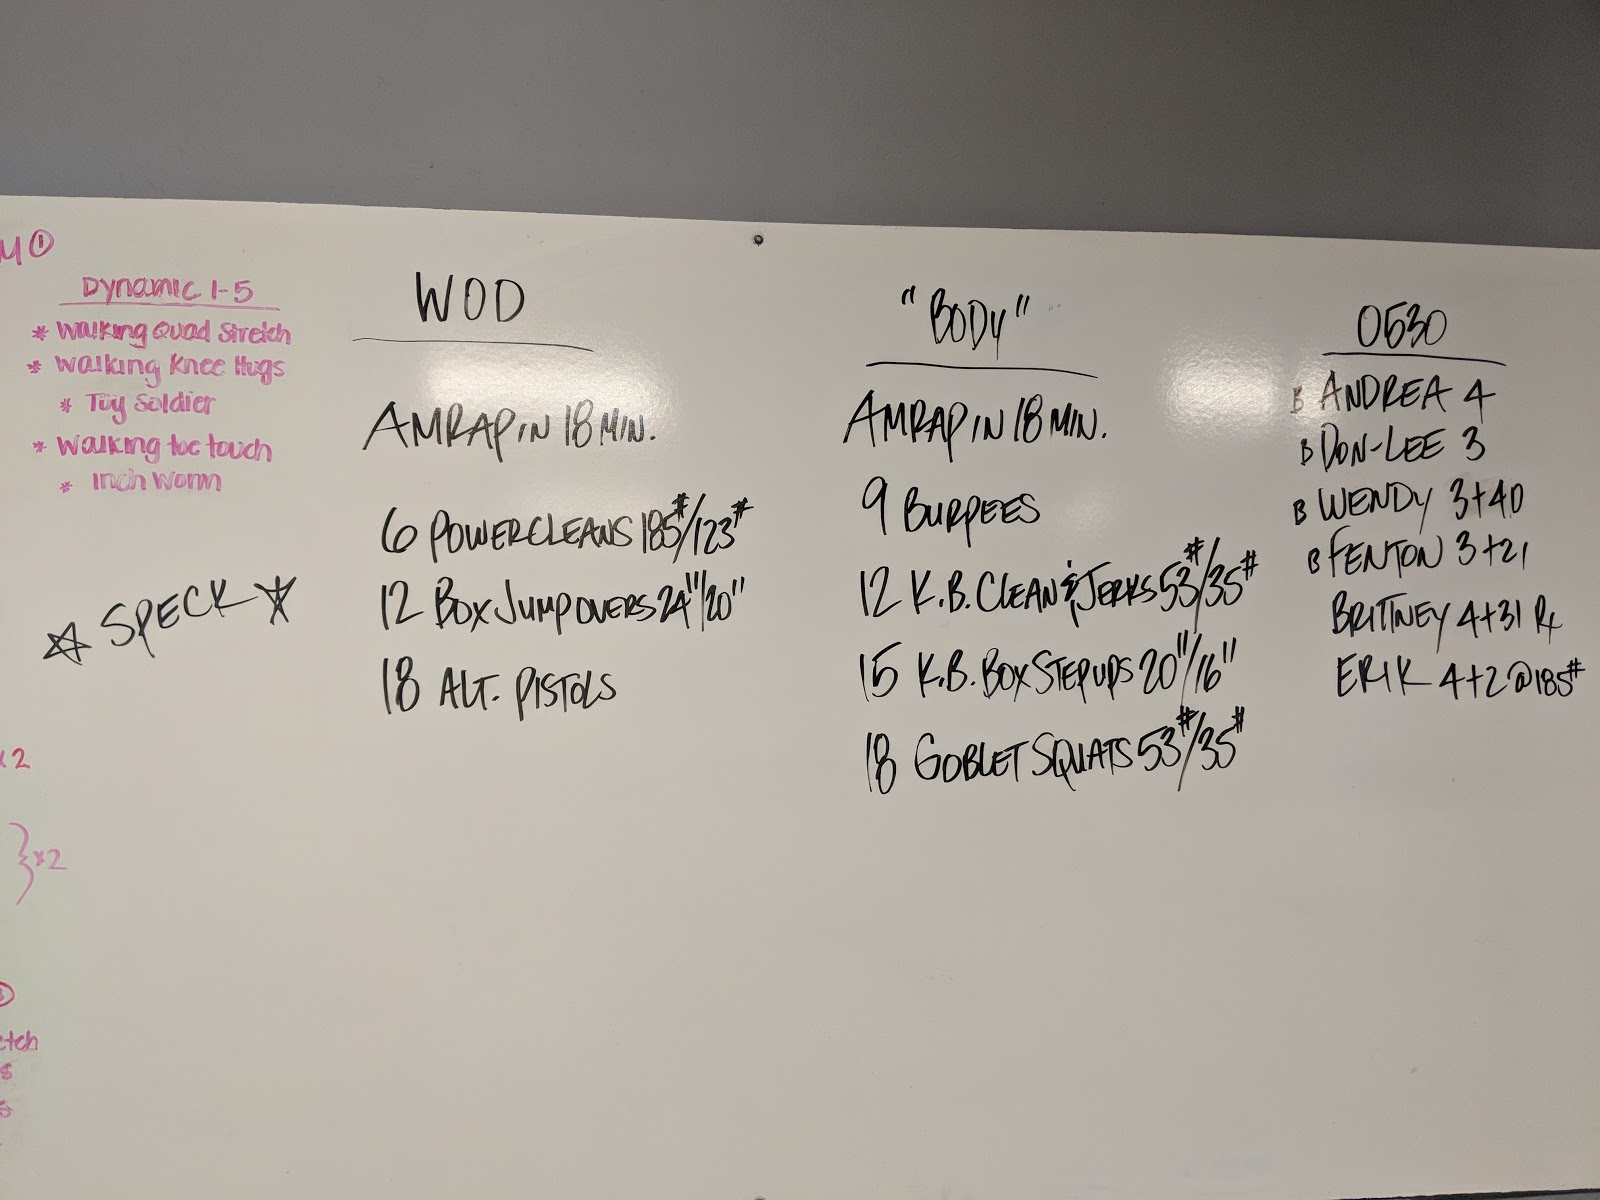 Dynamic 1-5
* Walking Quad Stretch
* Walking Knee Hugs
* Toy Soldier
* Walking toe touch
* Inch Worm
☆ SPECK ☆
x2
}x2
WOD
AMRAP IN 18 MIN.
6 POWERCLEANS 185#/123#
12 BOX JUMP OVERS 24"/20"
18 ALT. PISTOLS
"BODY"
AMRAP IN 18 MIN.
9 BURPEES
12 K.B. CLEAN & JERKS 53#/35#
15 K.B. BOX STEP UPS 20"/16"
18 GOBLET SQUATS 53#/35#
0530
B ANDREA 4
B DON-LEE 3
B WENDY 3+40
B FENTON 3+21
BRITTNEY 4+31 Rx
ERIK 4+2 @ 185#